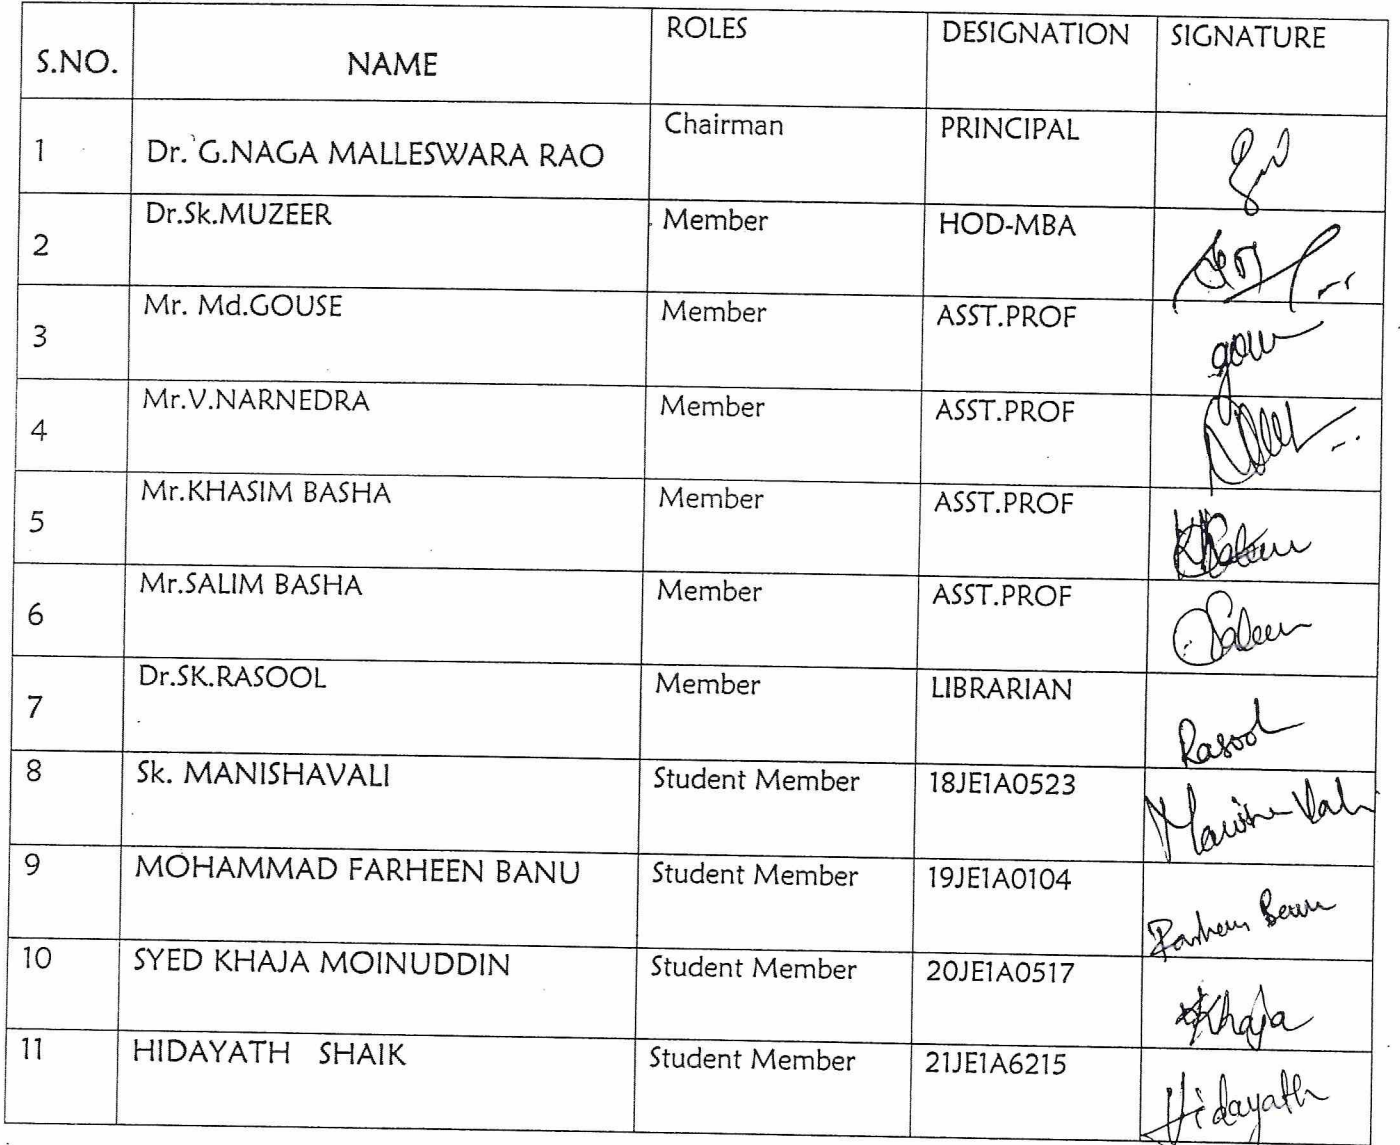 S.NO. NAME ROLES DESIGNATION SIGNATURE
1 Dr. G.NAGA MALLESWARA RAO Chairman PRINCIPAL
2 Dr.Sk.MUZEER Member HOD-MBA
3 Mr. Md.GOUSE Member ASST.PROF
4 Mr.V.NARNEDRA Member ASST.PROF
5 Mr.KHASIM BASHA Member ASST.PROF
6 Mr.SALIM BASHA Member ASST.PROF Saleem
7 Dr.SK.RASOOL Member LIBRARIAN Rasool
8 Sk. MANISHAVALI Student Member 18JE1A0523
9 MOHAMMAD FARHEEN BANU Student Member 19JE1A0104
10 SYED KHAJA MOINUDDIN Student Member 20JE1A0517 Khaja
11 HIDAYATH SHAIK Student Member 21JE1A6215 Hidayath